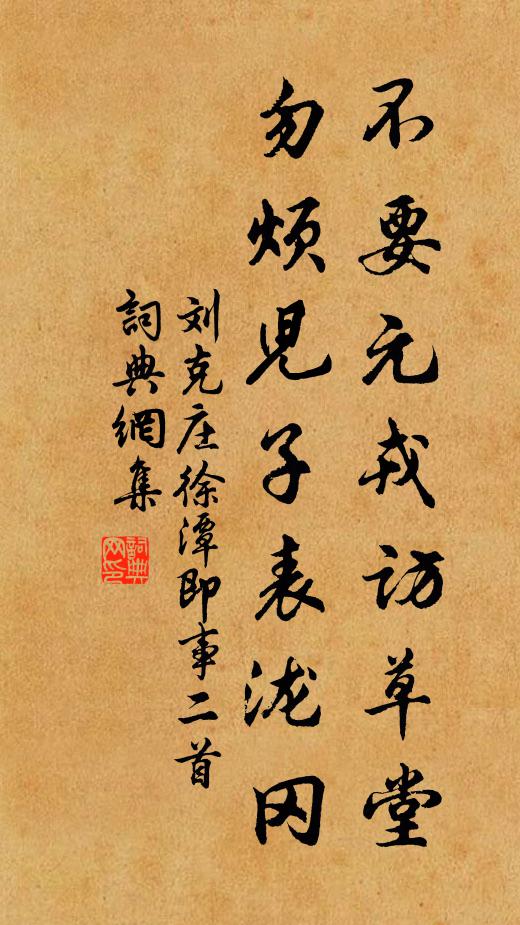 不要元戎访草堂
勿烦児子表泷冈
刘克庄徐潭即事二首
詞典網集
詞典网印